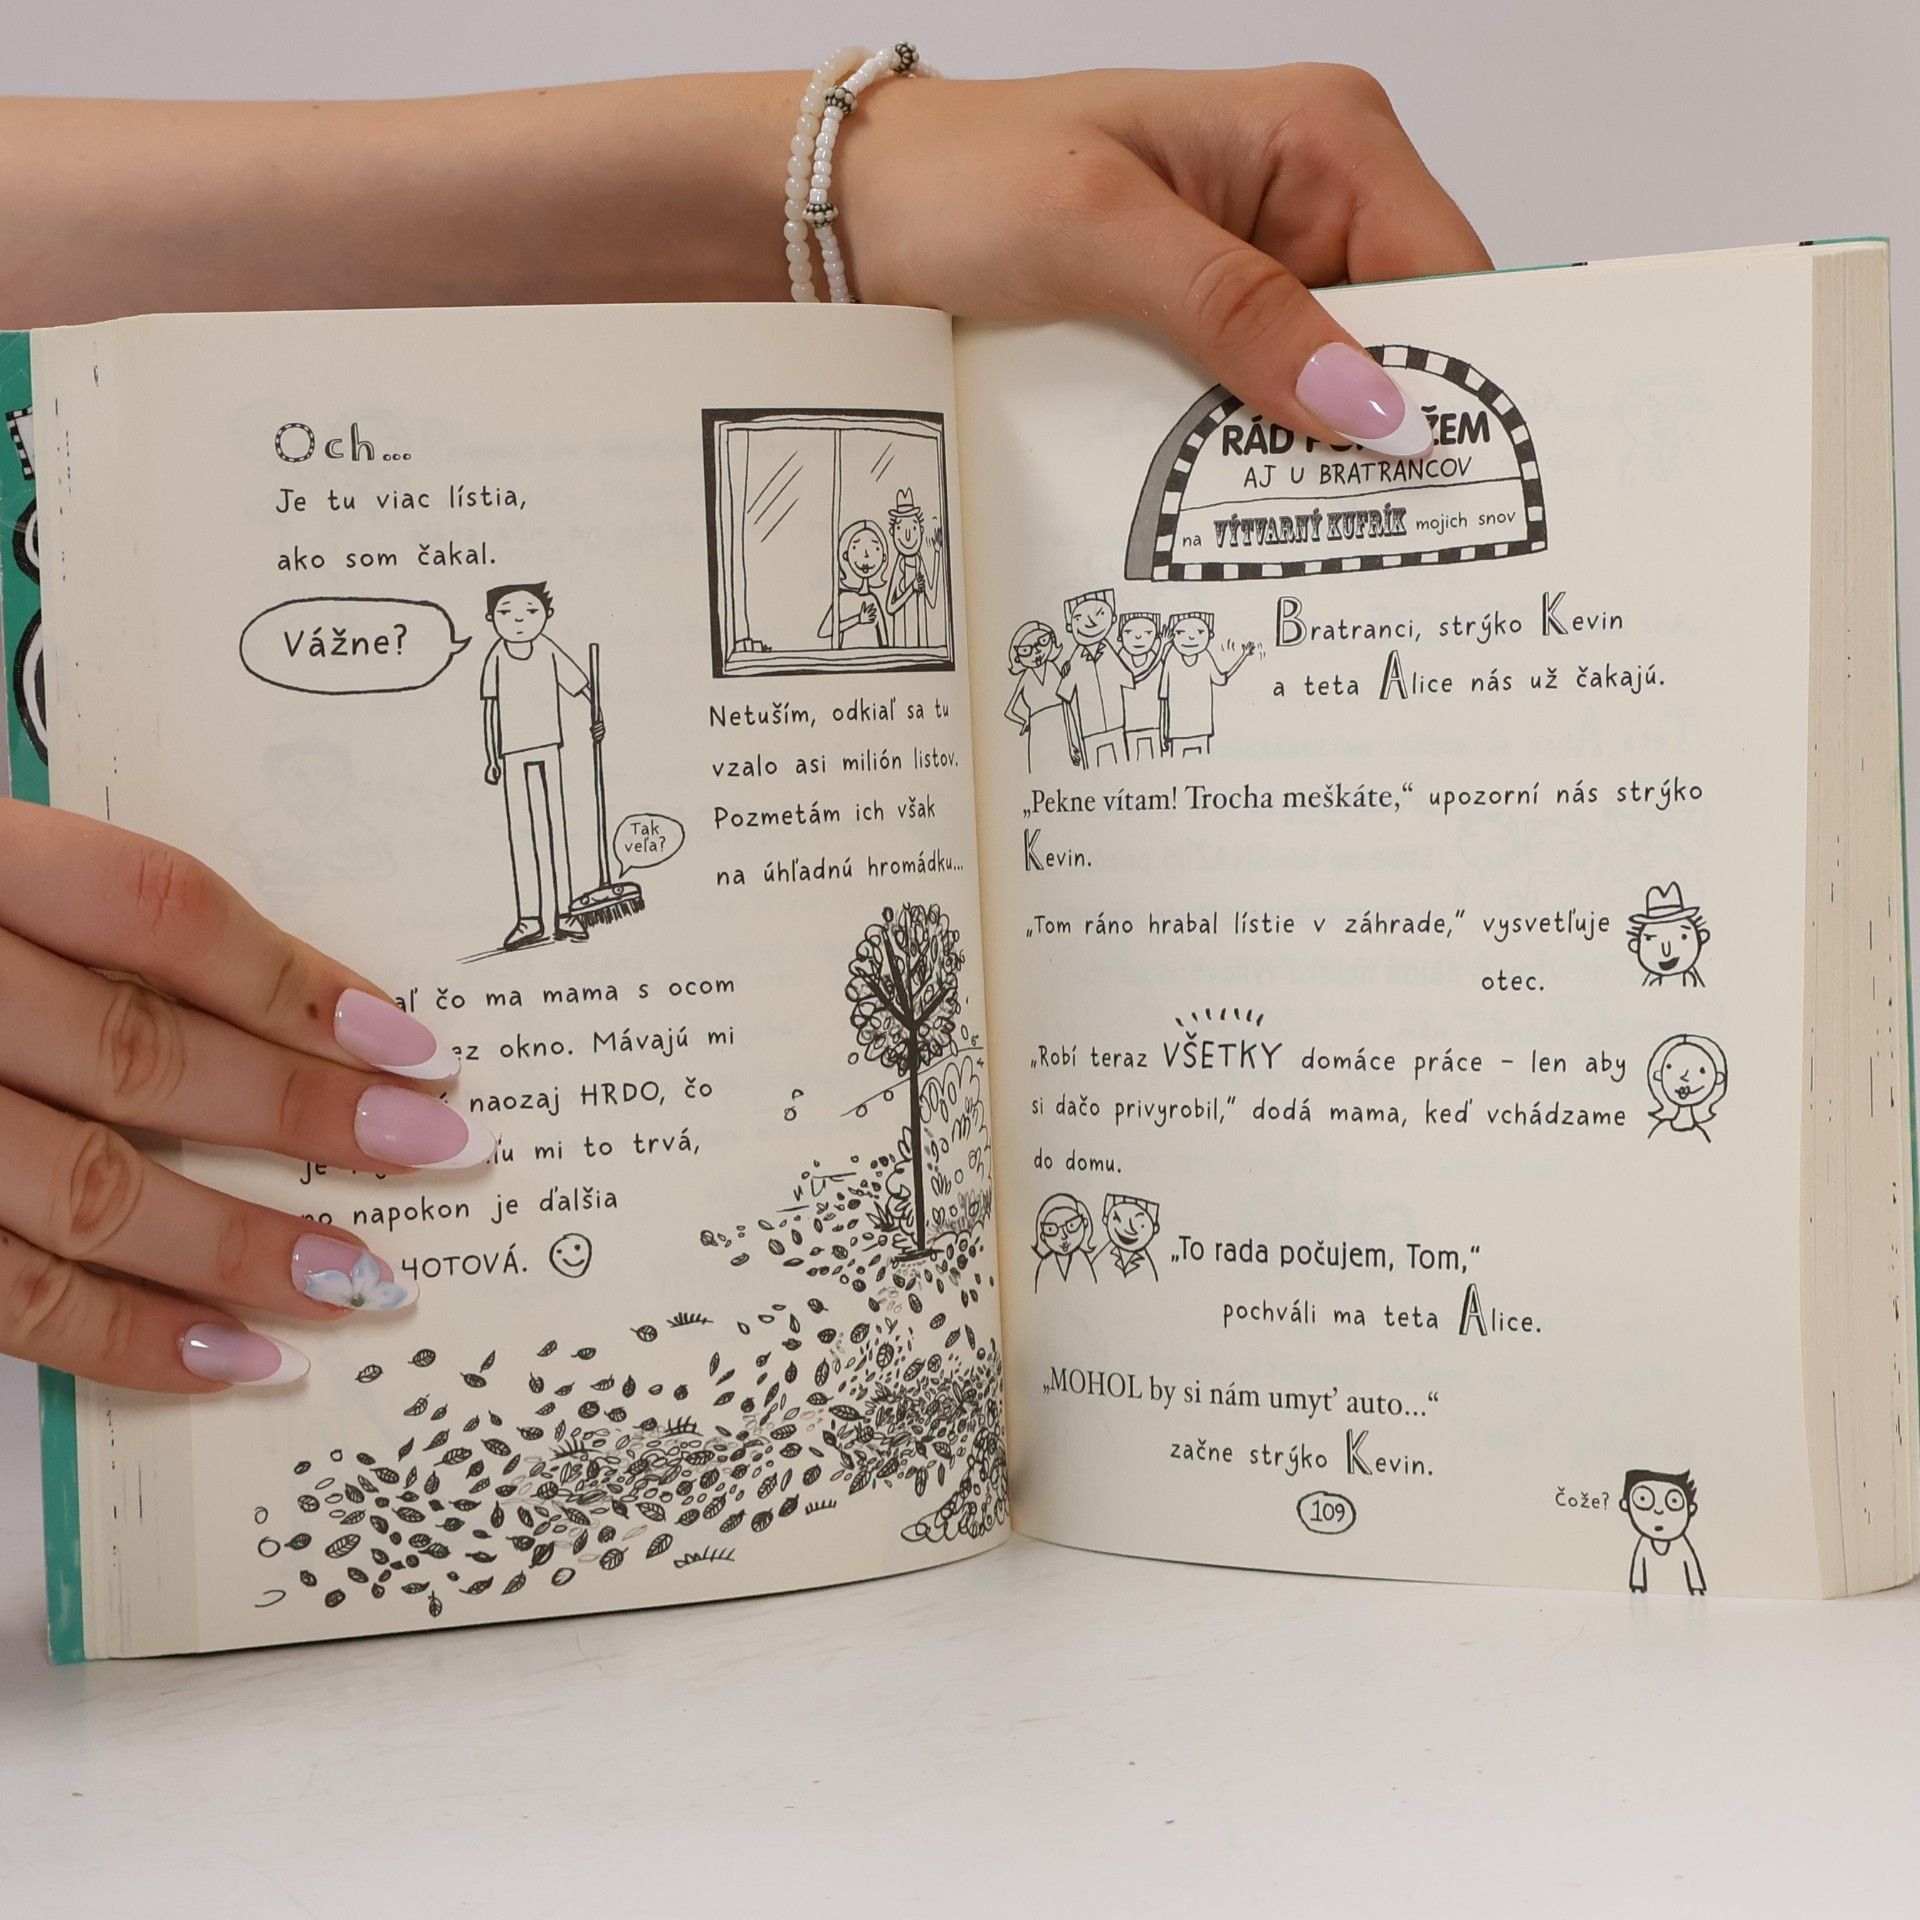 Och...
Je tu viac lístia,
ako som čakal.
Vážne?
Tak
veľa?
Netuším, odkiaľ sa tu
vzalo asi milión listov.
Pozmetám ich však
na úhľadnú hromádku...
čo ma mama s ocom
okno. Mávajú mi
naozaj HRDO, čo
mi to trvá,
napokon je ďalšia
RÁD
AJ U BRATRANCOV
na VÝTVARNÝ KUFRÍK mojich snov
Bratranci, strýko Kevin
a teta Alice nás už čakajú.
„Pekne vítam! Trocha meškáte,“ upozorní nás strýko
Kevin.
„Tom ráno hrabal lístie v záhrade,“ vysvetľuje
otec.
„Robí teraz VŠETKY domáce práce – len aby
si dačo privyrobil,“ dodá mama, keď vchádzame
do domu.
„To rada počujem, Tom,“
pochváli ma teta Alice.
„MOHOL by si nám umyť auto...“
začne strýko Kevin.
Čože?
109